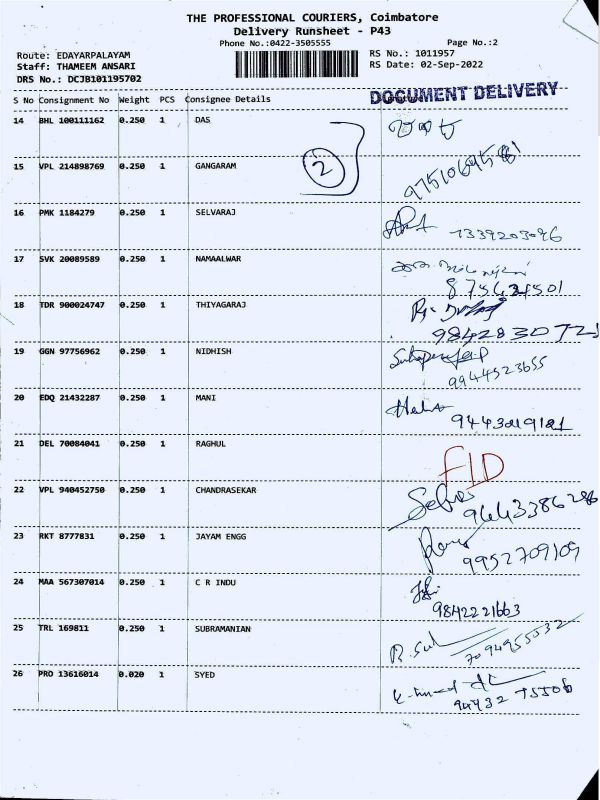 THE PROFESSIONAL COURIERS, Coimbatore
Delivery Runsheet - P43
Phone No.:0422-3505555 Page No.:2
Route: EDAYARPALAYAM RS No.: 1011957
Staff: THAMEEM ANSARI RS Date: 02-Sep-2022
DRS No.: DCJB101195702
DOCUMENT DELIVERY
S No Consignment No Weight PCS Consignee Details
14 BHL 100111162 0.250 1 DAS
2
15 VPL 214898769 0.250 1 GANGARAM
16 PMK 1184279 0.250 1 SELVARAJ
7339203096
17 SVK 20089589 0.250 1 NAMAALWAR
18 TDR 900024747 0.250 1 THIYAGARAJ
9842830721
19 GGN 97756962 0.250 1 NIDHISH
9944523655
20 EDQ 21432287 0.250 1 MANI
9443219121
21 DEL 70084041 0.250 1 RAGHUL
FID
22 VPL 940452750 0.250 1 CHANDRASEKAR
9643386286
23 RKT 8777831 0.250 1 JAYAM ENGG
9952709109
24 MAA 567307014 0.250 1 C R INDU
9842221663
25 TRL 169811 0.250 1 SUBRAMANIAN
7094955032
26 PRO 13616014 0.020 1 SYED
94432 75506